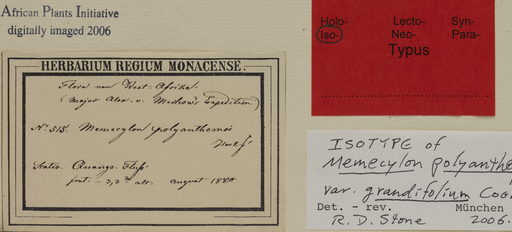 African Plants Initiative
digitally imaged 2006
HERBARIUM REGIUM MONACENSE.
Flora von West-Afrika.
(Major Alex. v. Mechow's Expedition)
No. 515. Memecylon polyanthemos
Hook f.
Statio. Quango-Fluss
august 1880
Holo- Lecto- Syn-
Iso- Neo- Para-
Typus
ISOTYPE of
Memecylon polyanthe
var. grandifolium Cog
Det. - rev. München
R. D. Stone 2006.